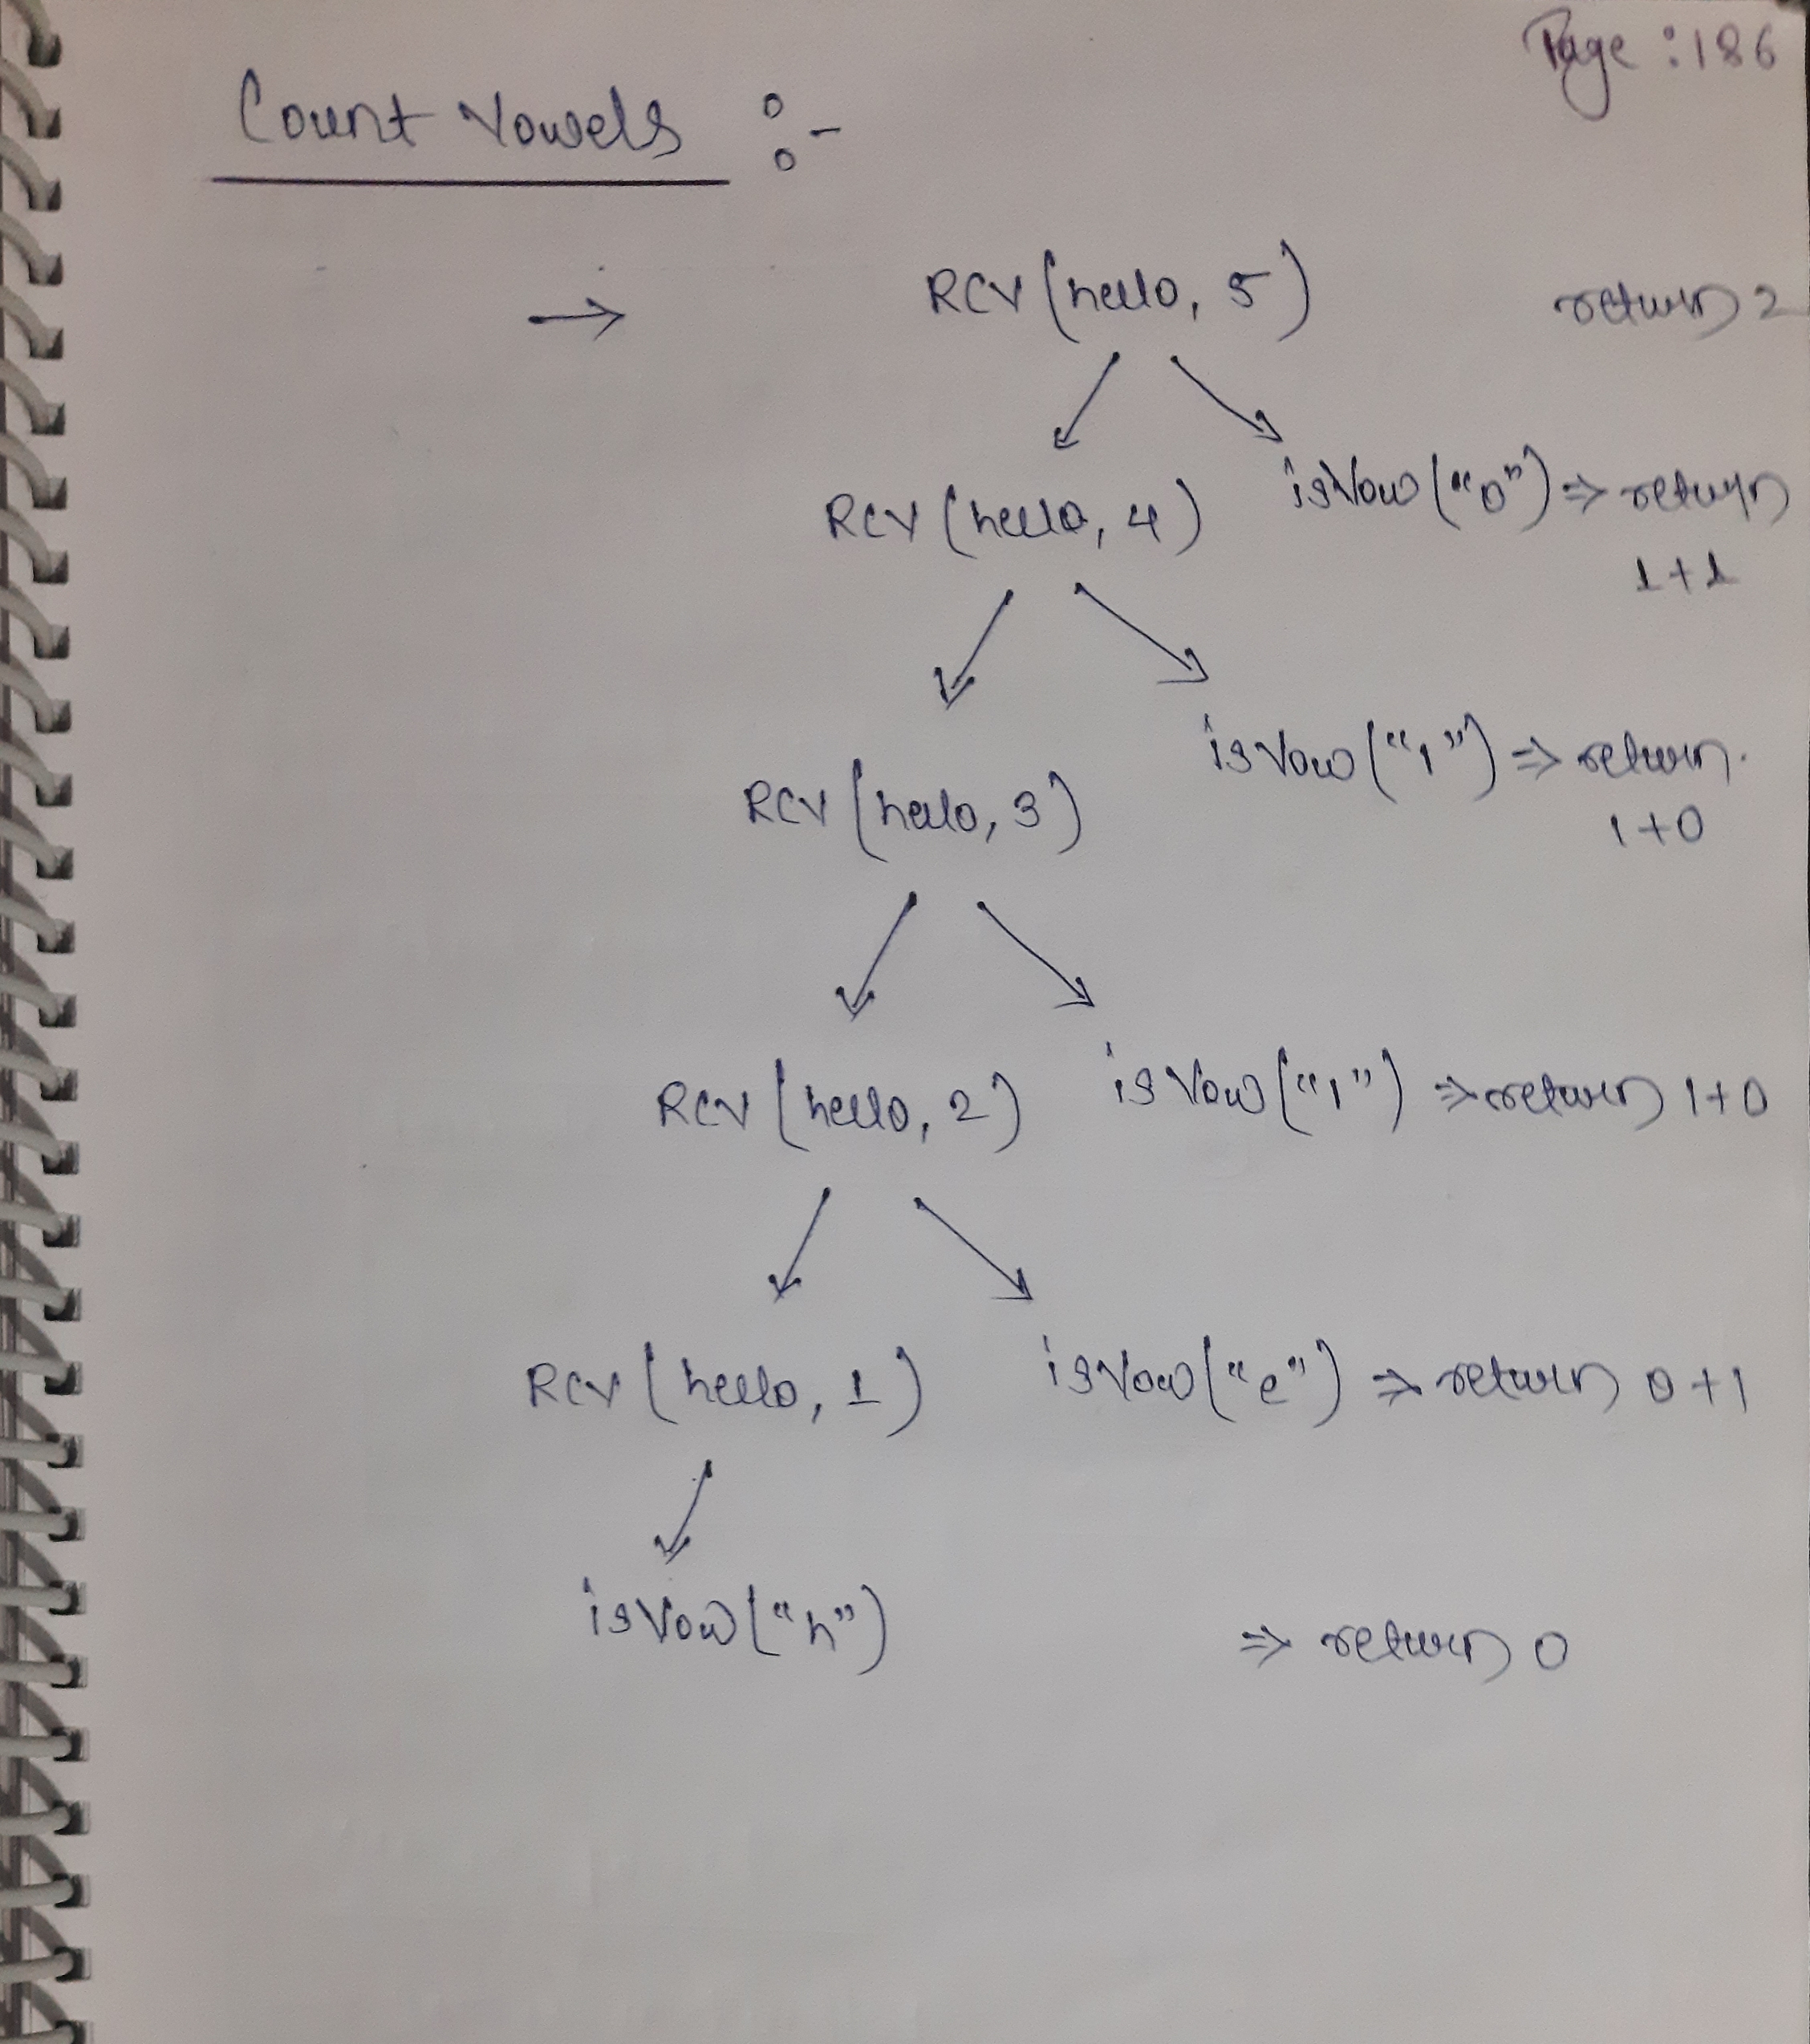 Page : 186
Count Vowels :-
→ RCV (hello, 5) return 2
RCV (hello, 4) isVow ("o") => return
1+1
isVow ("l") => return.
RCV (hello, 3) 1+0
RCV (hello, 2) isVow ("l") => return 1+0
RCV (hello, 1) isVow ("e") => return 0+1
isVow ("h") => return 0